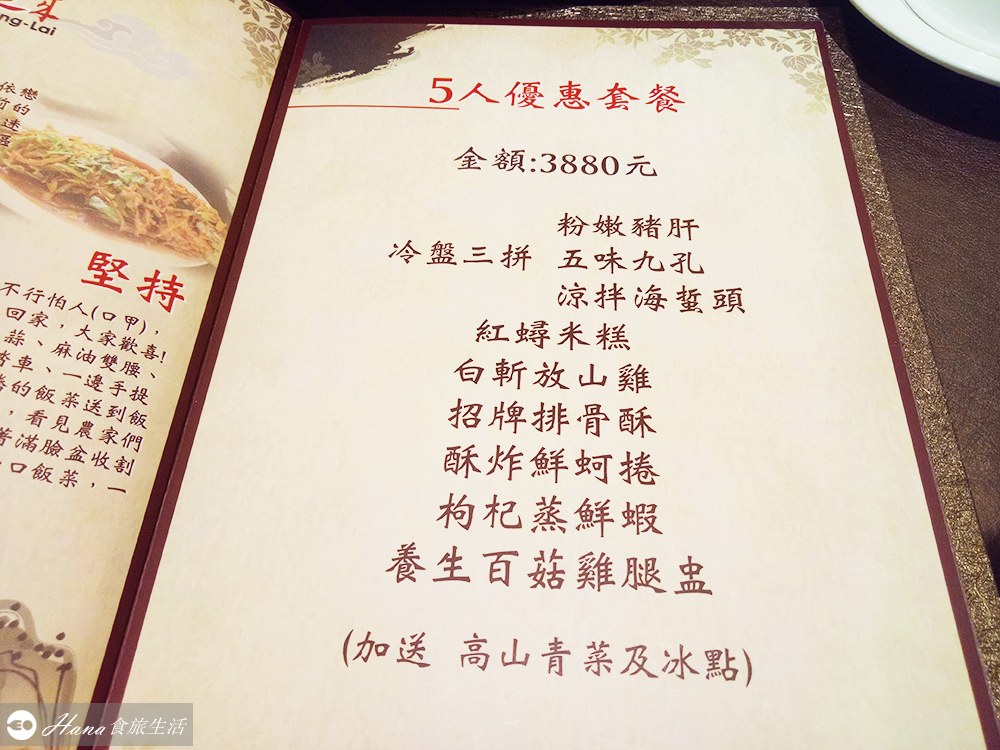 ng-Lai
依戀
前的
迷
堅持
不行怕人(口甲),
回家,大家歡喜!
蒜、麻油雙腰、
車、一邊手提
的飯菜送到飯
,看見農家們
著滿臉盆收割
口飯菜,一
5人優惠套餐
金額:3880元
冷盤三拼 粉嫩豬肝
五味九孔
涼拌海蜇頭
紅蟳米糕
白斬放山雞
招牌排骨酥
酥炸鮮蚵捲
枸杞蒸鮮蝦
養生百菇雞腿盅
(加送 高山青菜及冰點)
Hana食旅生活